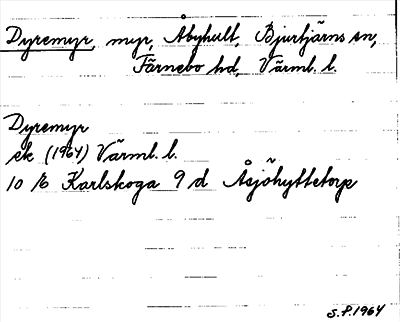 Dyremyr, myr, Åbyhult, Bjurtjärns sn,
Färnebo hd, Värml. l.
Dyremyr
ek (1964) Värml. l.
10 E Karlskoga 9 d Åsjöhyttetorp
S.P. 1964